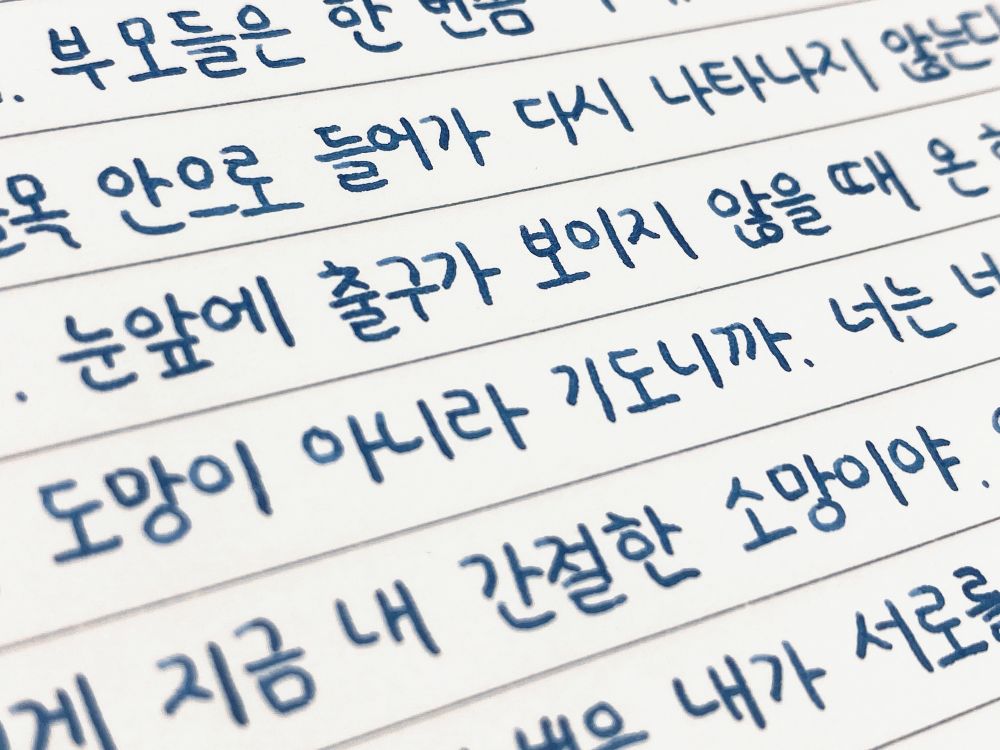 . 부모들은 한 번쯤
목 안으로 들어가 다시 나타나지 않는다
. 눈앞에 출구가 보이지 않을 때 온
도망이 아니라 기도니까. 너는 너
게 지금 내 간절한 소망이야.
내가 서로를